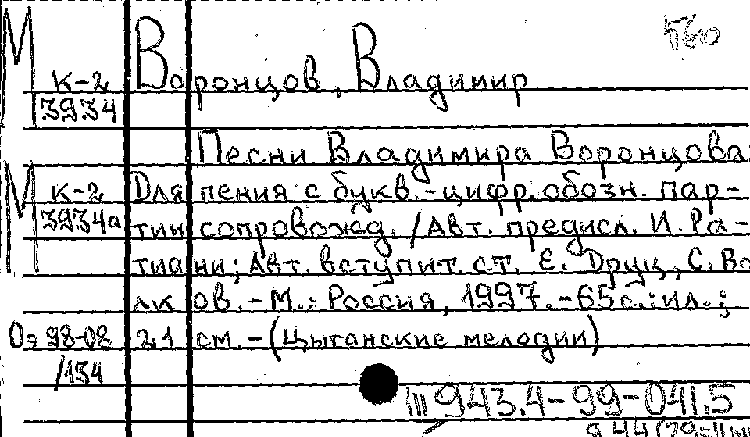 560
М Воронцов, Владимир
К-2
3934
Песни Владимира Воронцова:
М К-2 Для пения с букв.-цифр. обозн. пар-
3934а тии сопровожд. / Авт. предисл. И. Ра-
тиани; Авт. вступит. ст. Е. Друц, С. Во
лков. - М.: Россия, 1997. - 65 с.: ил.;
Оэ 98-08 21 см. - (Цыганские мелодии)
/154
III 943.4-99-041.5